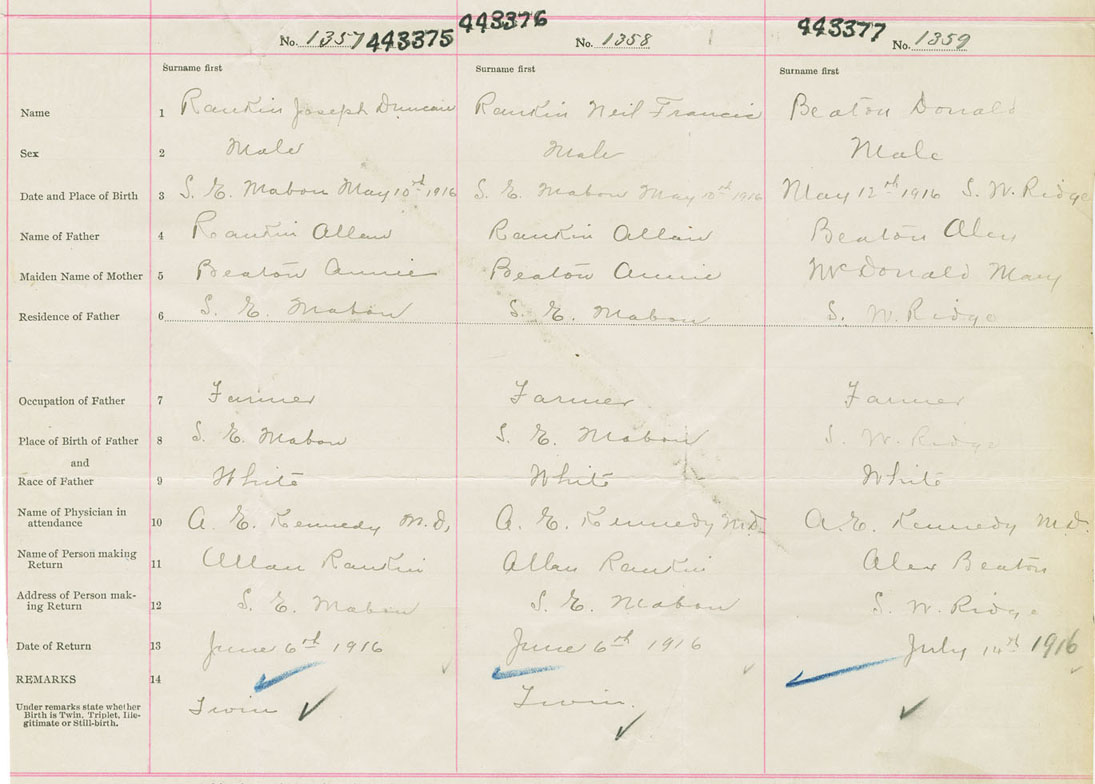 No. 1357 443375 443376 No. 1358 443377 No. 1359
Surname first Surname first Surname first
Name 1 Rankin Joseph Duncan Rankin Neil Francis Beaton Donald
Sex 2 Male Male Male
Date and Place of Birth 3 S. E. Mabou May 10th 1916 S. E. Mabou May 10th 1916 May 12th 1916 S. W. Ridge
Name of Father 4 Rankin Allan Rankin Allan Beaton Alex
Maiden Name of Mother 5 Beaton Annie Beaton Annie McDonald Mary
Residence of Father 6 S. E. Mabou S. E. Mabou S. W. Ridge
Occupation of Father 7 Farmer Farmer Farmer
Place of Birth of Father 8 S. E. Mabou S. E. Mabou S. W. Ridge
and
Race of Father 9 White White White
Name of Physician in
attendance 10 A. E. Kennedy M.D. A. E. Kennedy M.D. A. E. Kennedy M.D.
Name of Person making
Return 11 Allan Rankin Allan Rankin Alex Beaton
Address of Person mak-
ing Return 12 S. E. Mabou S. E. Mabou S. W. Ridge
Date of Return 13 June 6th 1916 June 6th 1916 July 14th 1916
REMARKS 14
Under remarks state whether
Birth is Twin, Triplet, Ille-
gitimate or Still-birth. Twin Twin.